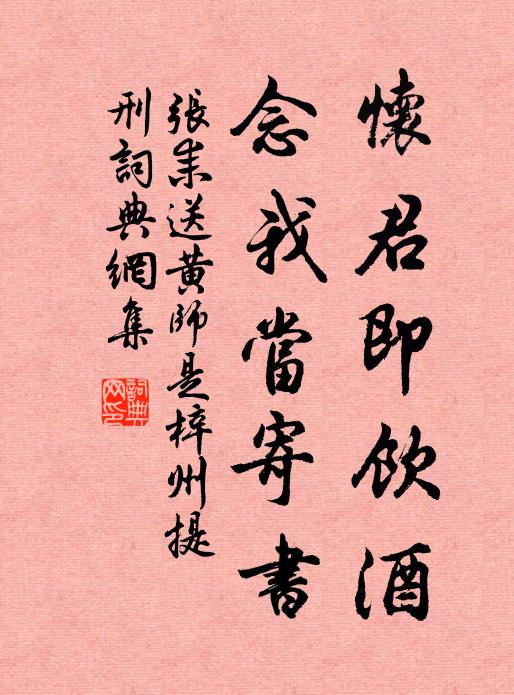 懷君即飲酒
念我當寄書
張耒送黃師是梓州提
刑詞典網集
詞典網印